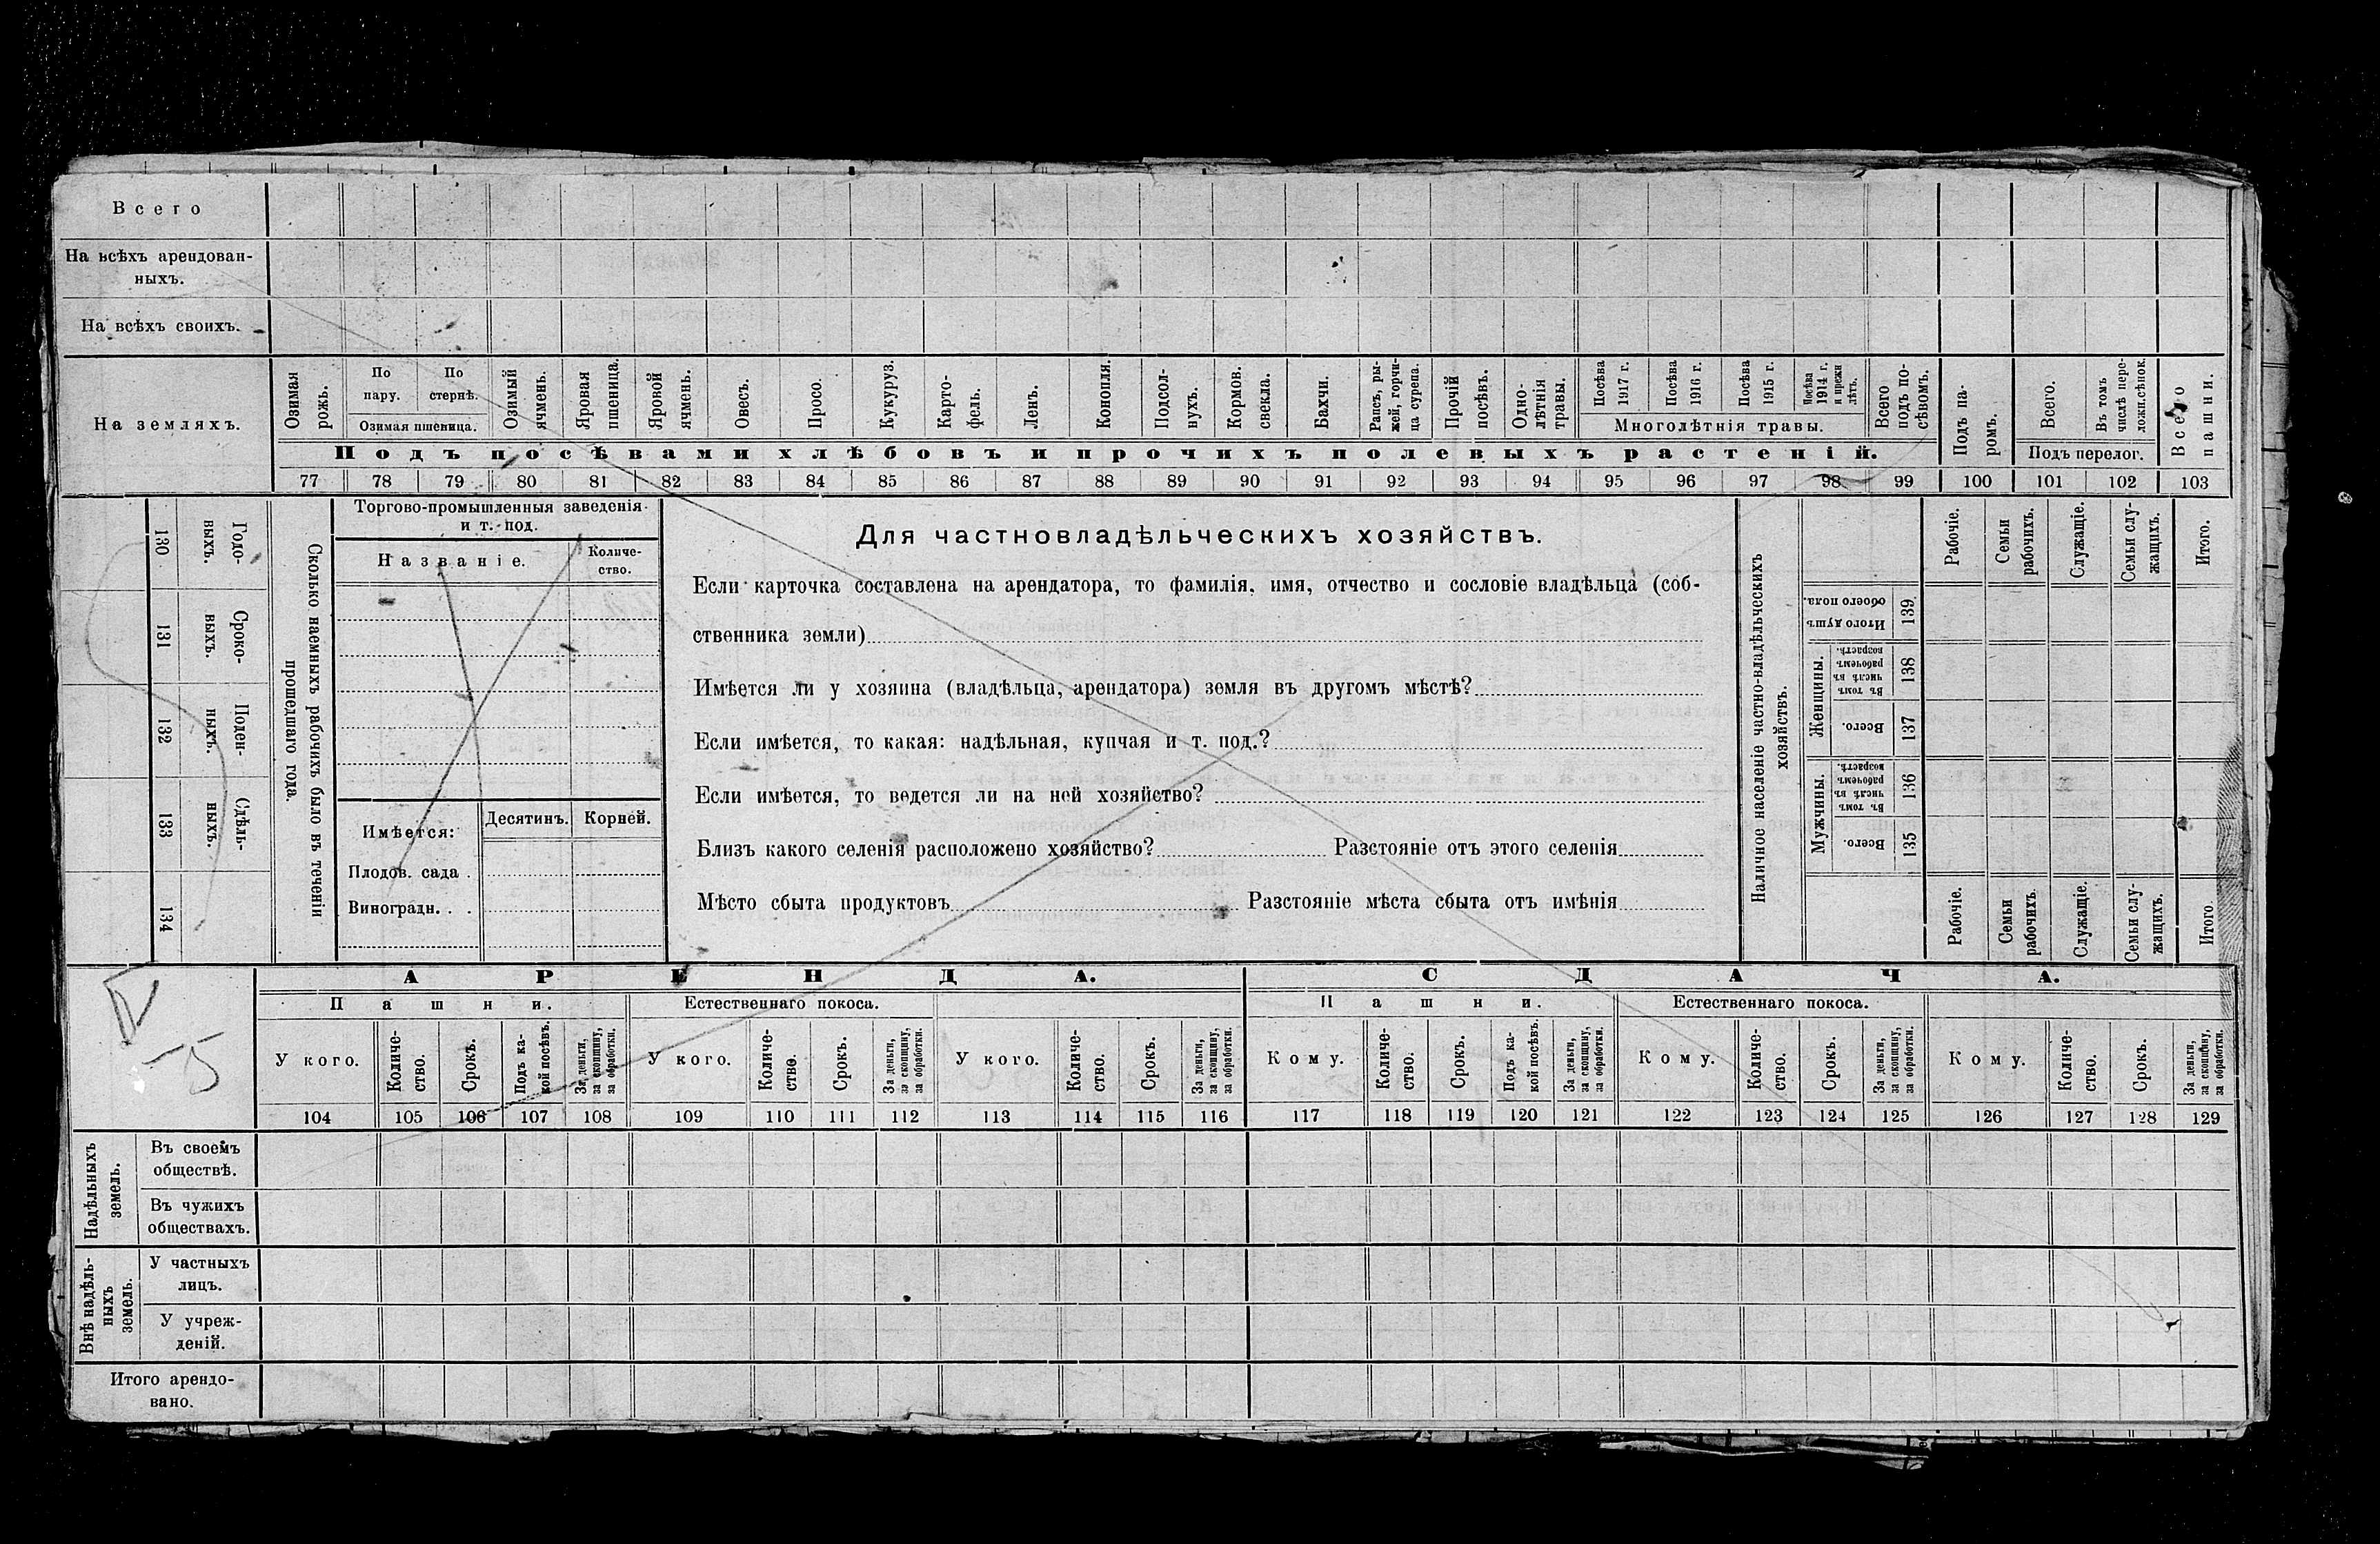 Всего
На всѣхъ арендован-
ныхъ.
На всѣхъ своихъ.
На земляхъ.
Озимая
рожь.
По
пару.
По
стернѣ.
Озимая пшеница.
Озимый
ячмень.
Яровая
пшеница.
Яровой
ячмень.
Овесъ.
Просо.
Кукуруз.
Карто-
фель.
Ленъ.
Конопля.
Подсол-
нухъ.
Кормов.
свекла.
Бахчи.
Рапсъ, ры-
жей, горчи-
ца сурепа.
Прочій
посѣвъ.
Одно-
лѣтнія
травы.
Посѣва
1917 г.
Посѣва
1916 г.
Посѣва
1915 г.
Посѣва
1914 г.
и прежн
лѣтъ.
Многолѣтнія травы.
Всего
подъ по-
сѣвомъ.
Подъ па-
ромъ.
Всего.
Въ томъ
числѣ пере-
ложн.сѣнок.
Подъ перелог.
Всего
пашни.
Подъ посѣвами хлѣбовъ и прочихъ полевыхъ растеній.
77 78 79 80 81 82 83 84 85 86 87 88 89 90 91 92 93 94 95 96 97 98 99 100 101 102 103
Сколько наемныхъ рабочихъ было въ теченіи
прошедшаго года.
Годо-
выхъ.
130
Сроко-
выхъ.
131
Поден-
ныхъ.
132
Сдѣль-
ныхъ.
133
134
Торгово-промышленныя заведенія
и т. под.
Названіе.
Количе-
ство.
Имѣется:
Десятинъ.
Корней.
Плодов. сада .
Виноградн. . .
Для частновладѣльческихъ хозяйствъ.
Если карточка составлена на арендатора, то фамилія, имя, отчество и сословіе владѣльца (соб-
ственника земли)
Имѣется ли у хозяина (владѣльца, арендатора) земля въ другомъ мѣстѣ?
Если имѣется, то какая: надѣльная, купчая и т. под.?
Если имѣется, то ведется ли на ней хозяйство?
Близъ какого селенія расположено хозяйство? Разстояніе отъ этого селенія
Мѣсто сбыта продуктовъ Разстояніе мѣста сбыта отъ имѣнія
Наличное населеніе частно-владѣльческихъ
хозяйствъ.
Рабочіе.
Семьи
рабочихъ.
Служащіе.
Семьи слу-
жащихъ.
Итого.
Итого душъ
обоего пола.
139
Женщины.
Въ томъ
числѣ въ
рабочемъ
возрастѣ.
138
Всего.
137
Мужчины.
Въ томъ
числѣ въ
рабочемъ
возрастѣ.
136
Всего.
135
Рабочіе.
Семьи
рабочихъ
Служащіе.
Семьи слу-
жащихъ.
Итого.
АРЕНДА.
СДАЧА.
Пашни.
Естественнаго покоса.
Пашни.
Естественнаго покоса.
У кого.
Количе-
ство.
Срокъ.
Подъ ка-
кой посѣвъ.
За деньги,
за скопщину,
за обработки.
У кого.
Количе-
ство.
Срокъ.
За деньги,
за скопщину,
за обработки.
У кого.
Количе-
ство.
Срокъ.
За деньги,
за скопщину,
за обработки.
Кому.
Количе-
ство.
Срокъ.
Подъ ка-
кой посѣвъ.
За деньги,
за скопщину,
за обработки.
Кому.
Количе-
ство.
Срокъ.
За деньги,
за скопщину,
за обработки.
Кому.
Количе-
ство.
Срокъ.
За деньги,
за скопщину,
за обработки.
104 105 106 107 108 109 110 111 112 113 114 115 116 117 118 119 120 121 122 123 124 125 126 127 128 129
Надѣльныхъ
земель.
Въ своемъ
обществѣ.
Въ чужихъ
обществахъ.
Внѣ надѣль-
ныхъ
земель.
У частныхъ
лицъ.
У учреж-
деній.
Итого арендо-
вано.